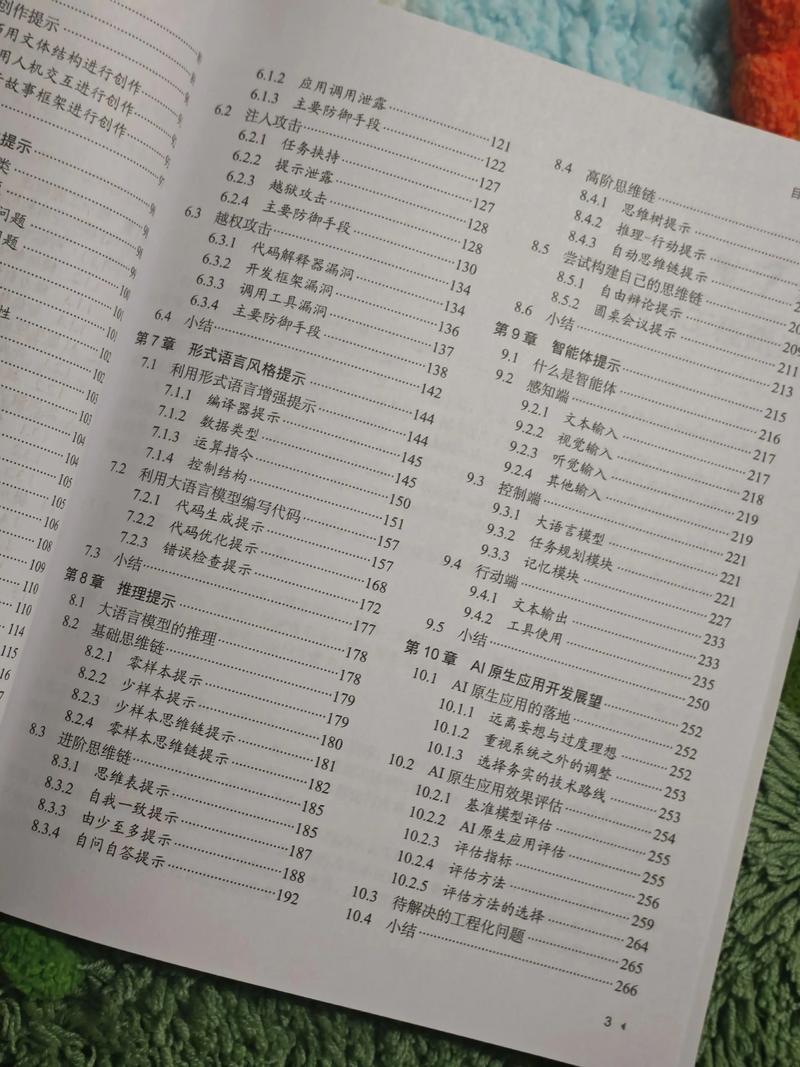 创作提示
用文体结构进行创作
用人机交互进行创作
故事框架进行创作
提示
类
问题
问题
100
101
101
性
102
102
103
103
104
104
105
105
106
108
109
110
110
114
115
116
117
6.1.2 应用调用泄露……121
6.1.3 主要防御手段……122
6.2 注入攻击……127
6.2.1 任务挟持……127
6.2.2 提示泄露……128
6.2.3 越狱攻击……128
6.2.4 主要防御手段……130
6.3 越权攻击……134
6.3.1 代码解释器漏洞……134
6.3.2 开发框架漏洞……136
6.3.3 调用工具漏洞……137
6.3.4 主要防御手段……138
6.4 小结……142
第7章 形式语言风格提示……144
7.1 利用形式语言增强提示……144
7.1.1 编译器提示……145
7.1.2 数据类型……145
7.1.3 运算指令……150
7.1.4 控制结构……151
7.2 利用大语言模型编写代码……157
7.2.1 代码生成提示……157
7.2.2 代码优化提示……168
7.2.3 错误检查提示……172
7.3 小结……177
第8章 推理提示……178
8.1 大语言模型的推理……178
8.2 基础思维链……179
8.2.1 零样本提示……179
8.2.2 少样本提示……180
8.2.3 少样本思维链提示……181
8.2.4 零样本思维链提示……182
8.3 进阶思维链……185
8.3.1 思维表提示……185
8.3.2 自我一致提示……187
8.3.3 由少至多提示……188
8.3.4 自问自答提示……192
目
8.4 高阶思维链……
8.4.1 思维树提示……
8.4.2 推理-行动提示……
8.4.3 自动思维链提示……
8.5 尝试构建自己的思维链……
8.5.1 自由辩论提示……209
8.5.2 圆桌会议提示……211
8.6 小结……213
第9章 智能体提示……215
9.1 什么是智能体……216
9.2 感知端……217
9.2.1 文本输入……217
9.2.2 视觉输入……218
9.2.3 听觉输入……219
9.2.4 其他输入……219
9.3 控制端……221
9.3.1 大语言模型……221
9.3.2 任务规划模块……221
9.3.3 记忆模块……227
9.4 行动端……233
9.4.1 文本输出……233
9.4.2 工具使用……235
9.5 小结……250
第10章 AI原生应用开发展望……252
10.1 AI原生应用的落地……252
10.1.1 远离妄想与过度理想……252
10.1.2 重视系统之外的调整……253
10.1.3 选择务实的技术路线……253
10.2 AI原生应用效果评估……254
10.2.1 基准模型评估……255
10.2.2 AI原生应用评估……255
10.2.3 评估指标……256
10.2.4 评估方法……259
10.2.5 评估方法的选择……264
10.3 待解决的工程化问题……265
10.4 小结……266
3